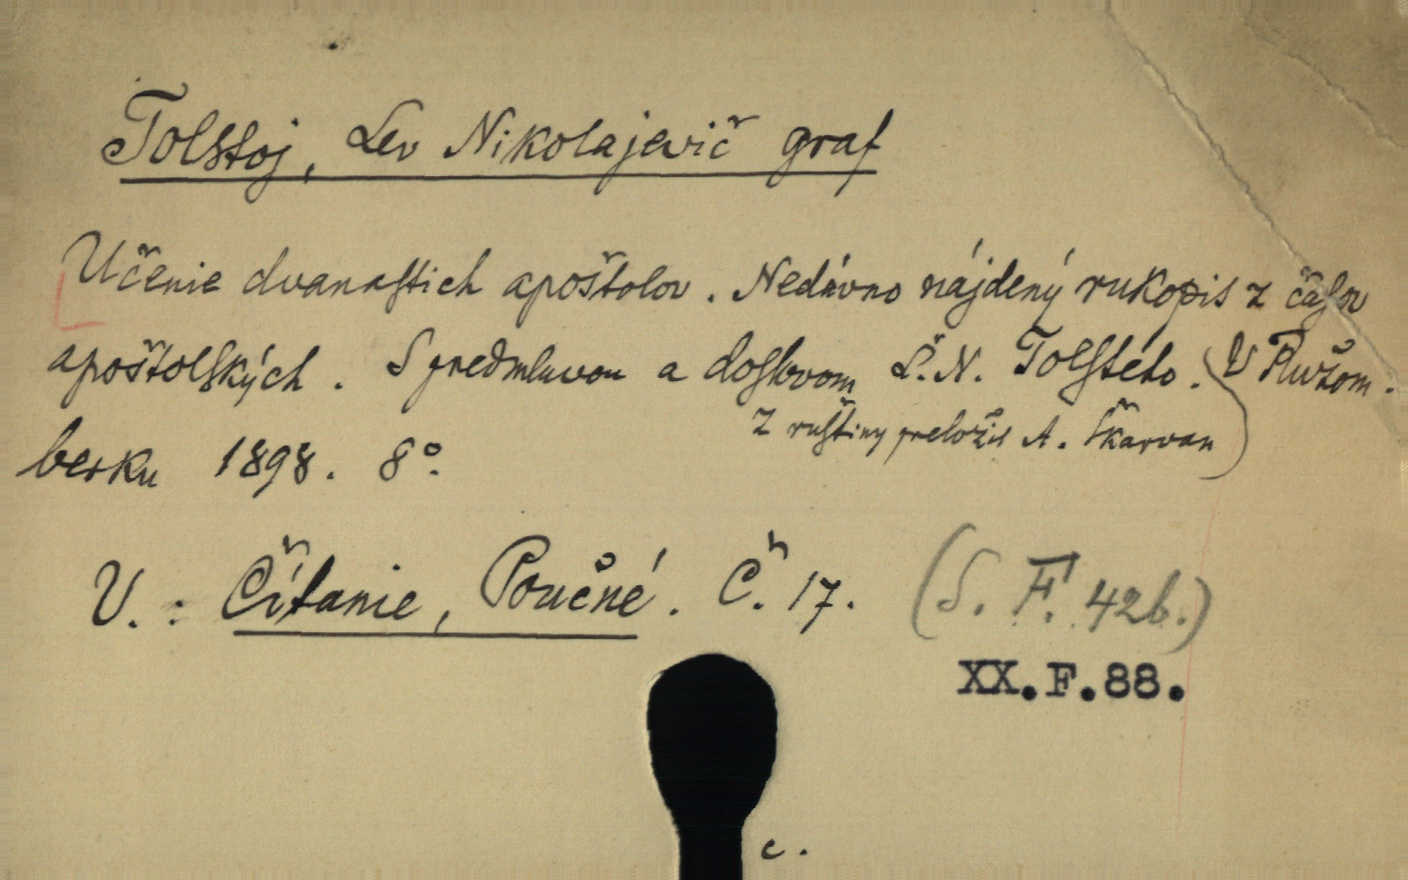 Tolstoj, Lev Nikolajevič graf
Učenie dvanastich apoštolov. Nedávno nájdený rukopis z časov
apoštolských. S predmluvou a doslovom L. N. Tolstého. V Ružom-
berku 1898. 8°.
Z ruštiny preložil A. Škarvan
V.: Čítanie, Poučné. Č. 17. (S. F. 42b.)
XX.F.88.
c.